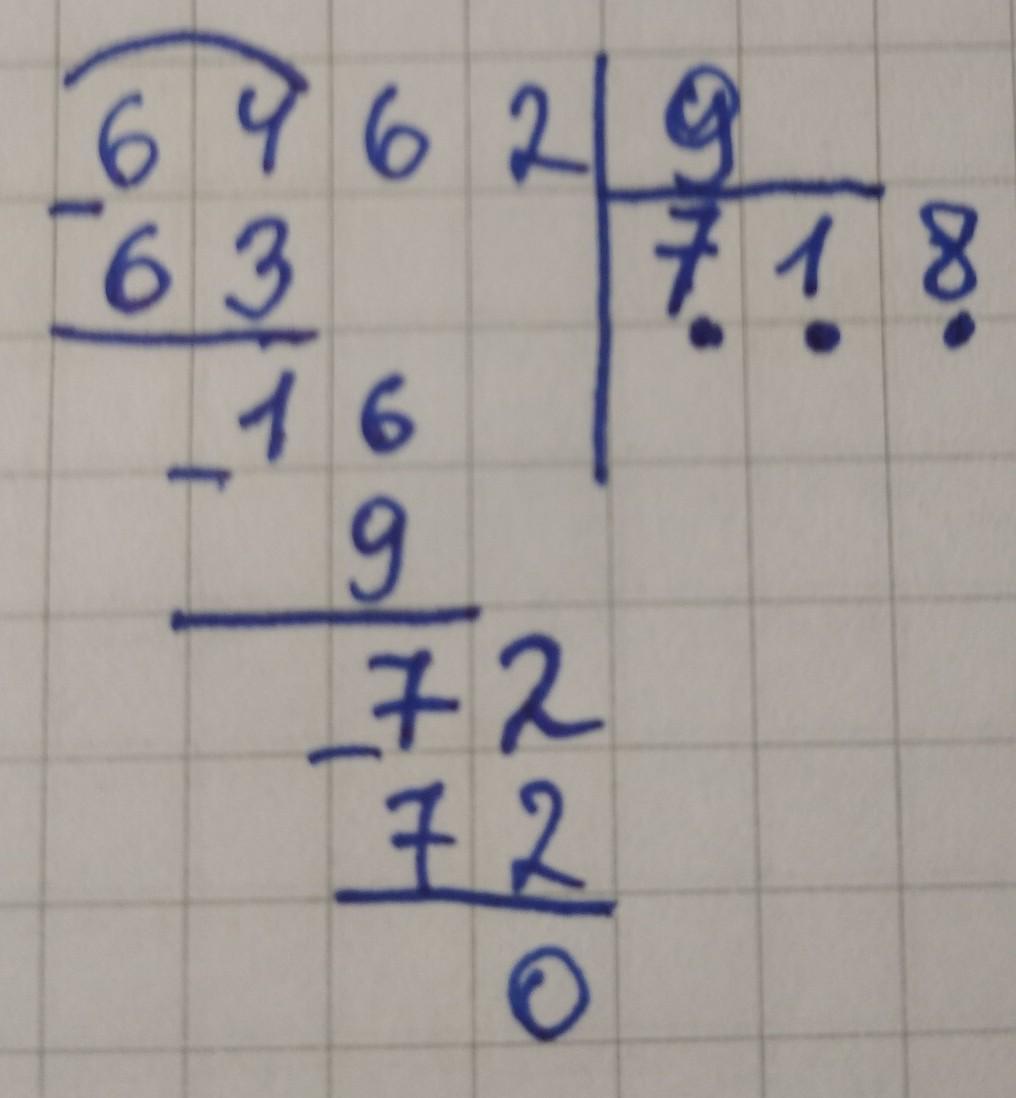 6462 9
- 63 718
16
- 9
72
- 72
0